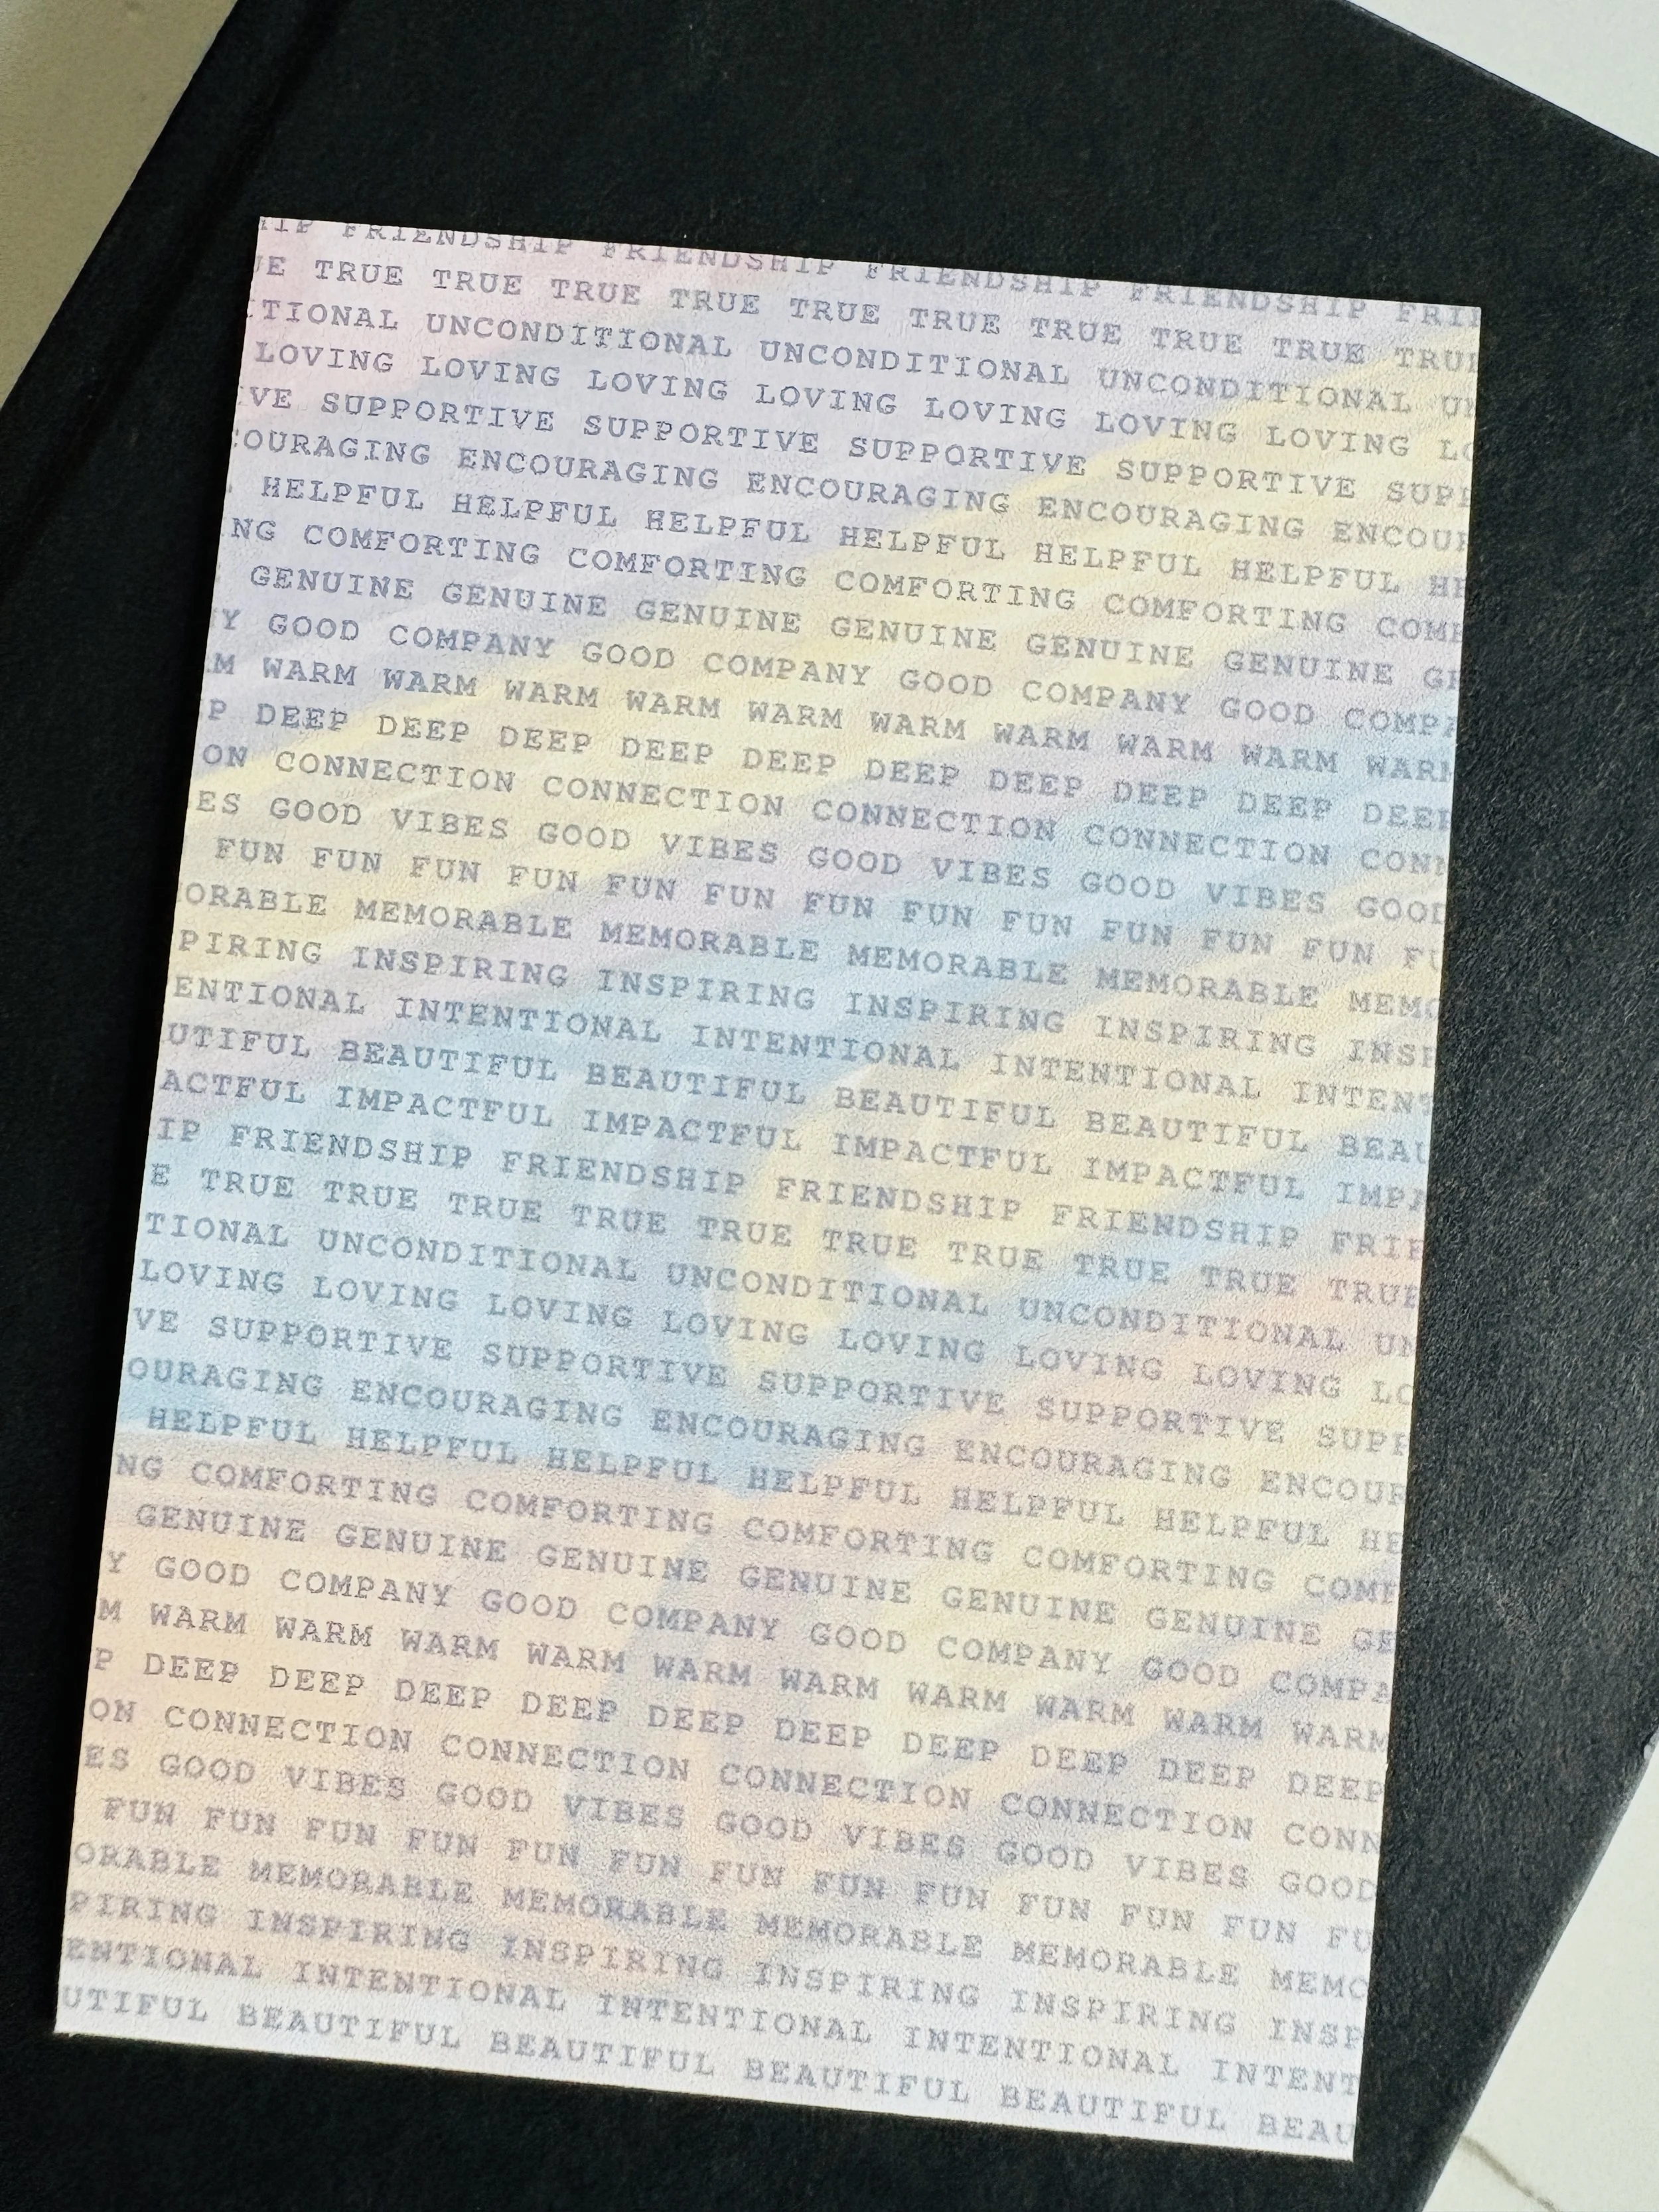 HIP FRIENDSHIP FRIENDSHIP FRIENDSHIP FRIENDSHIP FRI
UE TRUE TRUE TRUE TRUE TRUE TRUE TRUE TRUE TRUE TRUE
ITIONAL UNCONDITIONAL UNCONDITIONAL UNCONDITIONAL UN
LOVING LOVING LOVING LOVING LOVING LOVING LOVING LO
IVE SUPPORTIVE SUPPORTIVE SUPPORTIVE SUPPORTIVE SUPP
COURAGING ENCOURAGING ENCOURAGING ENCOURAGING ENCOUR
HELPFUL HELPFUL HELPFUL HELPFUL HELPFUL HELPFUL HE
NG COMFORTING COMFORTING COMFORTING COMFORTING COMF
GENUINE GENUINE GENUINE GENUINE GENUINE GENUINE GE
Y GOOD COMPANY GOOD COMPANY GOOD COMPANY GOOD COMPA
M WARM WARM WARM WARM WARM WARM WARM WARM WARM WARM
P DEEP DEEP DEEP DEEP DEEP DEEP DEEP DEEP DEEP DEEP
ON CONNECTION CONNECTION CONNECTION CONNECTION CONN
ES GOOD VIBES GOOD VIBES GOOD VIBES GOOD VIBES GOOD
FUN FUN FUN FUN FUN FUN FUN FUN FUN FUN FUN FUN FU
ORABLE MEMORABLE MEMORABLE MEMORABLE MEMORABLE MEMO
PIRING INSPIRING INSPIRING INSPIRING INSPIRING INSP
ENTIONAL INTENTIONAL INTENTIONAL INTENTIONAL INTENT
UTIFUL BEAUTIFUL BEAUTIFUL BEAUTIFUL BEAUTIFUL BEAU
ACTFUL IMPACTFUL IMPACTFUL IMPACTFUL IMPACTFUL IMPA
IP FRIENDSHIP FRIENDSHIP FRIENDSHIP FRIENDSHIP FRIE
E TRUE TRUE TRUE TRUE TRUE TRUE TRUE TRUE TRUE TRUE
TIONAL UNCONDITIONAL UNCONDITIONAL UNCONDITIONAL UN
LOVING LOVING LOVING LOVING LOVING LOVING LOVING LO
VE SUPPORTIVE SUPPORTIVE SUPPORTIVE SUPPORTIVE SUPP
OURAGING ENCOURAGING ENCOURAGING ENCOURAGING ENCOUR
HELPFUL HELPFUL HELPFUL HELPFUL HELPFUL HELPFUL HE
NG COMFORTING COMFORTING COMFORTING COMFORTING COMF
GENUINE GENUINE GENUINE GENUINE GENUINE GENUINE GE
Y GOOD COMPANY GOOD COMPANY GOOD COMPANY GOOD COMPA
M WARM WARM WARM WARM WARM WARM WARM WARM WARM WARM
P DEEP DEEP DEEP DEEP DEEP DEEP DEEP DEEP DEEP DEEP
ON CONNECTION CONNECTION CONNECTION CONNECTION CONN
ES GOOD VIBES GOOD VIBES GOOD VIBES GOOD VIBES GOOD
FUN FUN FUN FUN FUN FUN FUN FUN FUN FUN FUN FUN FU
ORABLE MEMORABLE MEMORABLE MEMORABLE MEMORABLE MEMO
PIRING INSPIRING INSPIRING INSPIRING INSPIRING INSP
ENTIONAL INTENTIONAL INTENTIONAL INTENTIONAL INTENT
UTIFUL BEAUTIFUL BEAUTIFUL BEAUTIFUL BEAUTIFUL BEAU